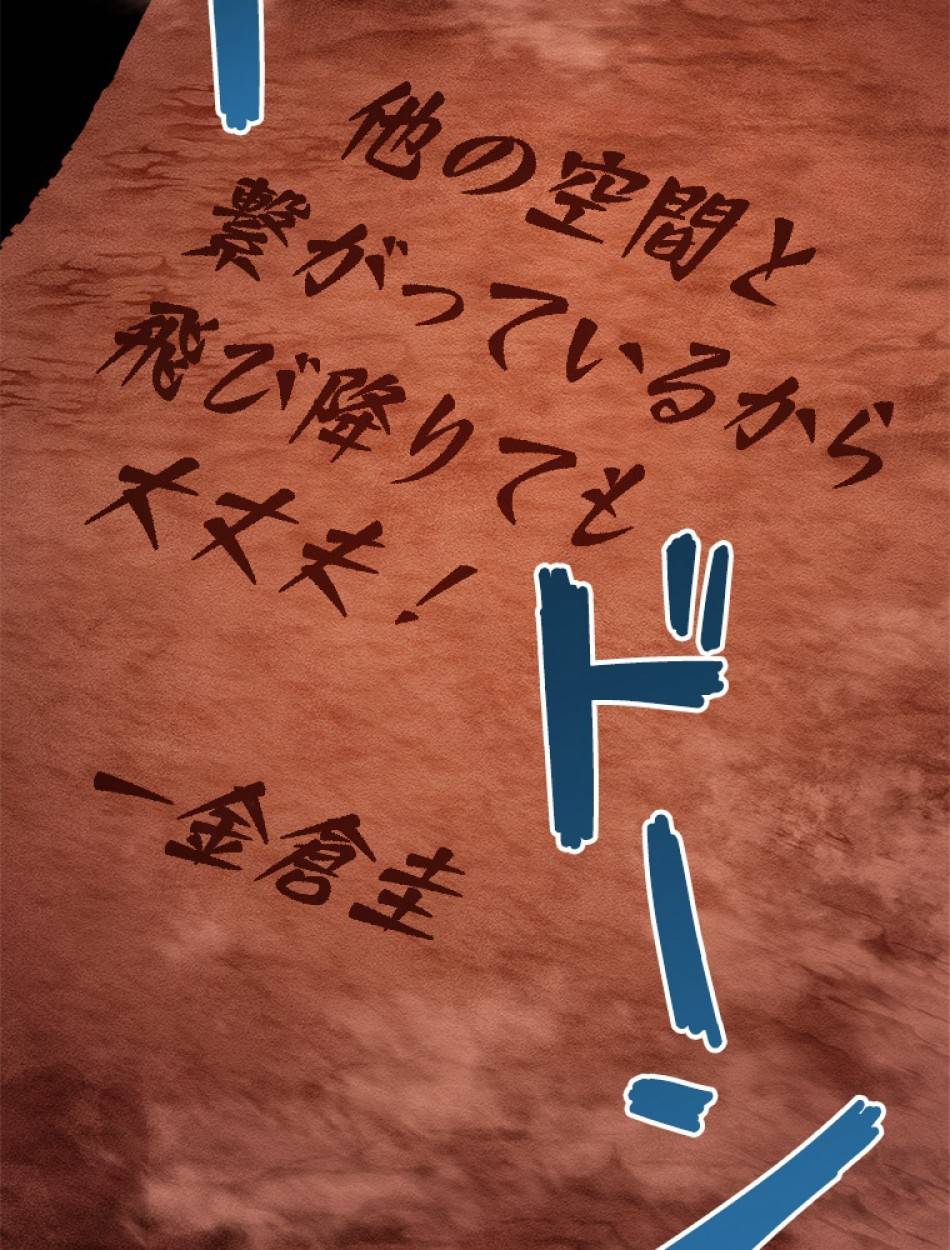 他の空間と
繋がっているから
飛び降りても
大丈夫！
一金倉圭
ドーン